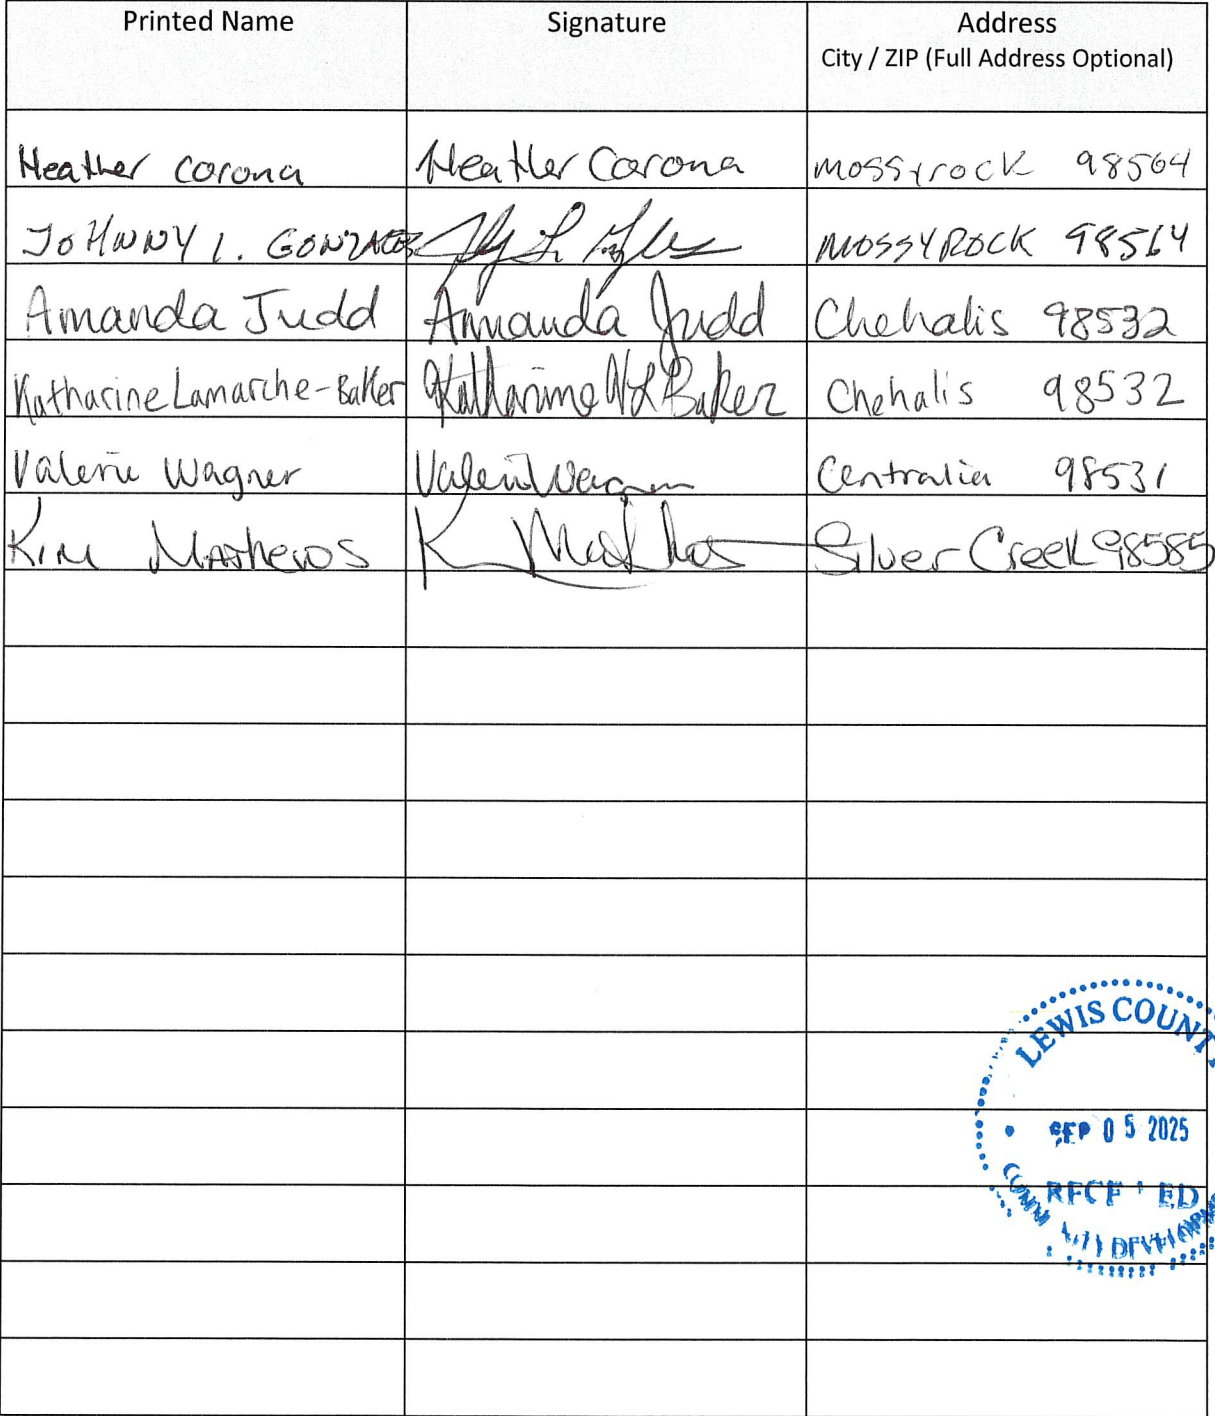 Printed Name Signature Address
City / ZIP (Full Address Optional)
Heather Corona Heather Corona mossyrock 98564
JOHNNY L. GONZALES MOSSYROCK 98564
Amanda Judd Amanda Judd Chehalis 98532
Katharine Lamarche-Baker Katharine N L Baker Chehalis 98532
Valerie Wagner Valerie Wagner Centralia 98531
Kim Mathews K Silver Creek 98585
LEWIS COUNT
SEP 05 2025